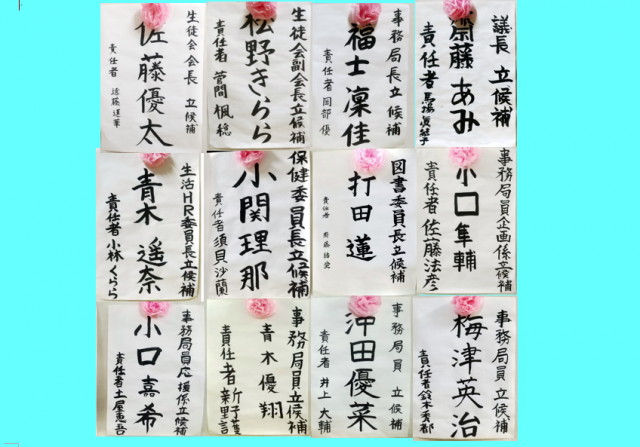 生徒会会長 立候補
佐藤優太
責任者
生徒会副会長立候補
松野きらら
責任者 菅間 楓稔
事務局長立候補
福士凜佳
責任者 岡部 優
議長 立候補
齋藤 あみ
責任者
生活HR委員長立候補
青木 遥奈
責任者 小林 くらら
保健委員長立候補
小関理那
責任者 須貝沙蘭
図書委員長立候補
打田 蓮
責任者
事務局員企画係立候補
小口隼輔
責任者 佐藤法彦
事務局員応援係立候補
小口嘉希
責任者 土屋恵吾
事務局員立候補
青木優翔
責任者
事務局員 立候補
沖田優菜
責任者 井上 大輔
事務局員 立候補
梅津英治
責任者 鈴木秀都